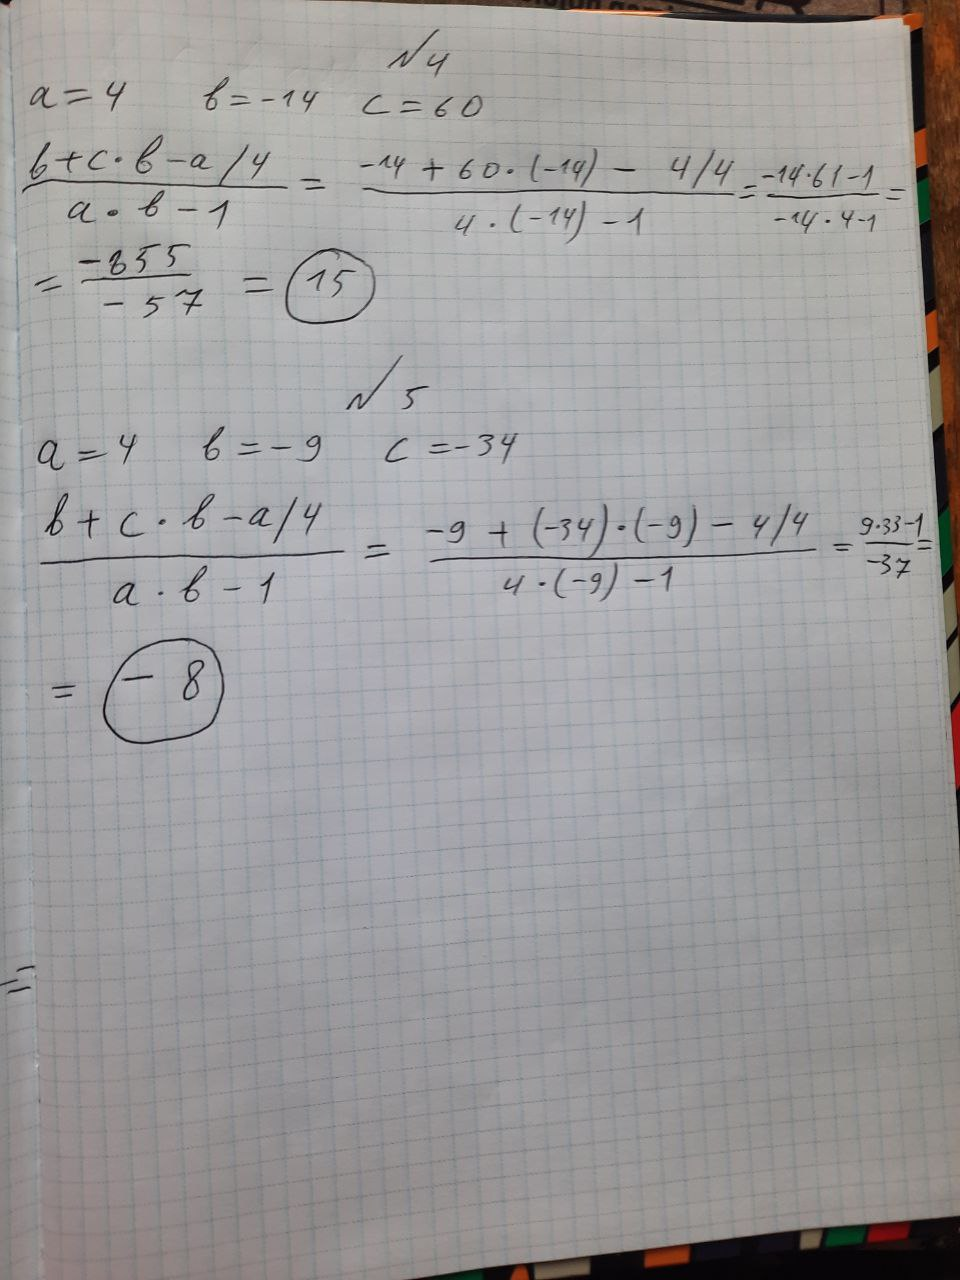 №4
a = 4 b = -14 c = 60
(b + c · b - a / 4) / (a · b - 1) = (-14 + 60 · (-14) - 4/4) / (4 · (-14) - 1) = (-14 · 61 - 1) / (-14 · 4 - 1) =
= -855 / -57 = 15
№5
a = 4 b = -9 c = -34
(b + c · b - a / 4) / (a · b - 1) = (-9 + (-34) · (-9) - 4/4) / (4 · (-9) - 1) = (9 · 33 - 1) / -37 =
= -8
=